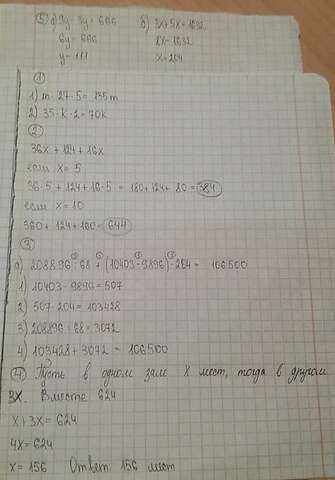 ⑤ а) 9y - 3y = 666 б) 3x+5x=1632
6y = 666 8x=1632
y = 111 x=204
①
1) m · 27 · 5 = 135m
2) 35 · k · 2 = 70k
②
36x + 124 + 16x
если x = 5
36·5 + 124 + 16·5 = 180 + 124 + 80 = 384
если x = 10
360 + 124 + 160 = 644
③
а) 208896 : 68 + (10403 - 9896) · 204 = 106500
1) 10403 - 9896 = 507
2) 507 · 204 = 103428
3) 208896 : 68 = 3072
4) 103428 + 3072 = 106500
④ Пусть в одном зале x мест, тогда в другом
3x. Вместе 624
x + 3x = 624
4x = 624
x = 156 Ответ 156 мест